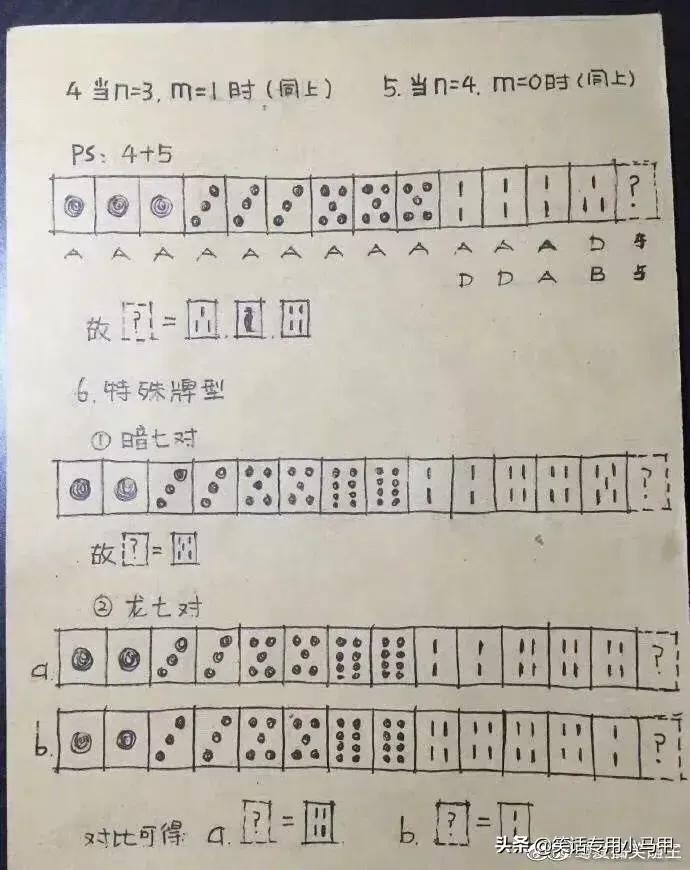 4 当n=3, m=1时(同上) 5. 当n=4, m=0时(同上)
PS: 4+5
?
A A A A A A A A A A A A D 与
D D A B 与
故 ? =
6. 特殊牌型
① 暗七对
?
故 ? =
② 龙七对
a. ?
b. ?
对比可得: a. ? = b. ? =
头条 @笑话专用小马甲